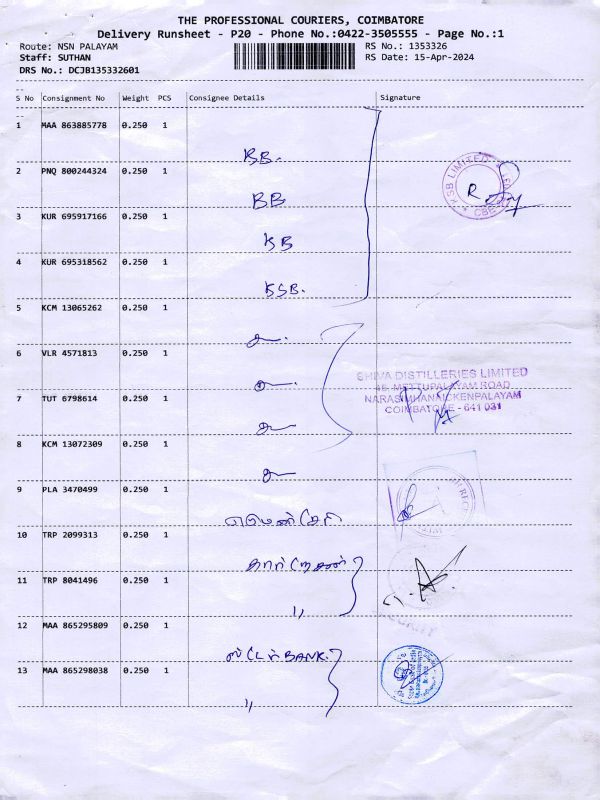 THE PROFESSIONAL COURIERS, COIMBATORE
Delivery Runsheet - P20 - Phone No.:0422-3505555 - Page No.:1
Route: NSN PALAYAM RS No.: 1353326
Staff: SUTHAN RS Date: 15-Apr-2024
DRS No.: DCJB135332601
S No Consignment No Weight PCS Consignee Details Signature
1 MAA 863885778 0.250 1
KB.
2 PNQ 800244324 0.250 1
KB
3 KUR 695917166 0.250 1
KB
4 KUR 695318562 0.250 1
KSB.
KSB LIMITED
CBE
5 KCM 13065262 0.250 1
6 VLR 4571813 0.250 1
SHIVA DISTILLERIES LIMITED
METTUPALAYAM ROAD
7 TUT 6798614 0.250 1
NARASIMHANAICKENPALAYAM
COIMBATORE - 641 031
8 KCM 13072309 0.250 1
9 PLA 3470499 0.250 1
10 TRP 2099313 0.250 1
11 TRP 8041496 0.250 1
,,
12 MAA 865295809 0.250 1
BANK.
13 MAA 865298038 0.250 1
,,